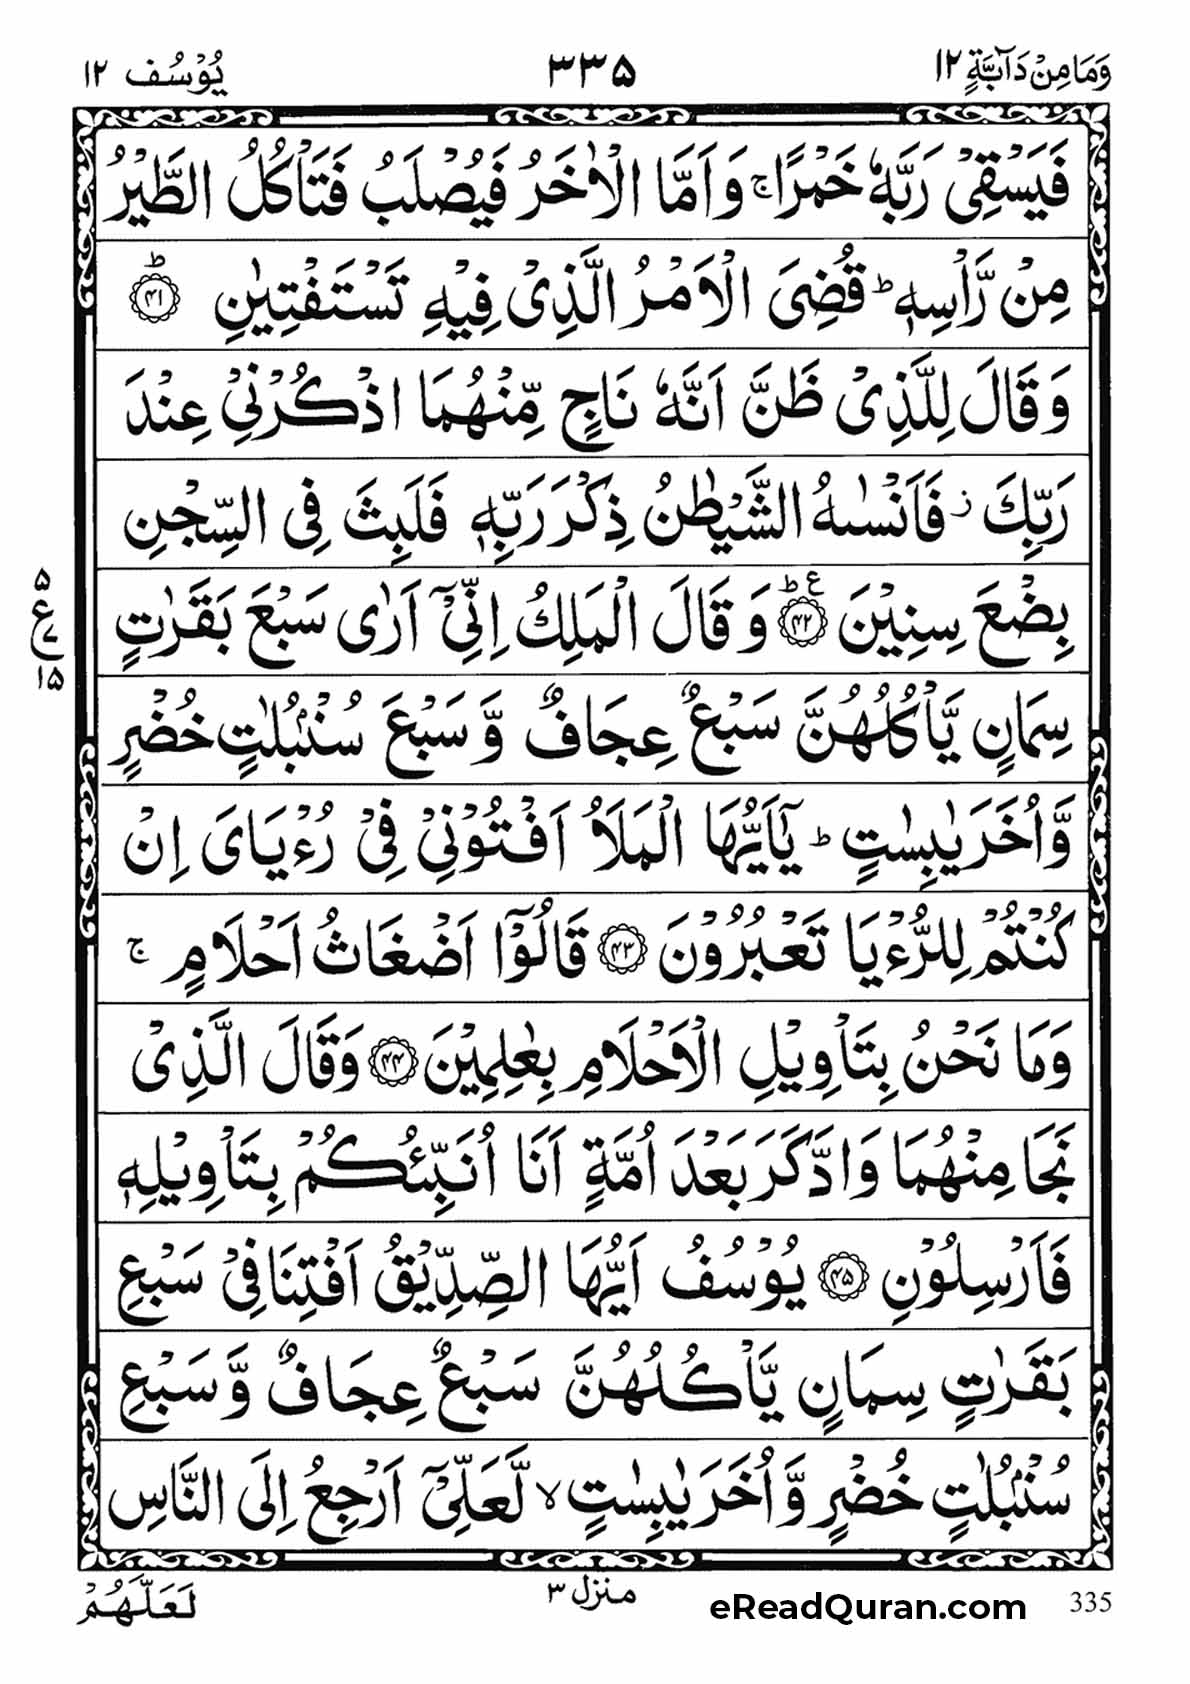 وَمَا مِنْ دَآبَّةٍ ۱۲
۳۳۵
يُوْسُف ۱۲
فَيَسْقِىْ رَبَّهٗ خَمْرًا ۚ وَاَمَّا الْاٰخَرُ فَيُصْلَبُ فَتَاْكُلُ الطَّيْرُ
مِنْ رَّاْسِهٖ ؕ قُضِىَ الْاَمْرُ الَّذِىْ فِيْهِ تَسْتَفْتِيٰنِ ؕ ﴿۴۱﴾
وَقَالَ لِلَّذِىْ ظَنَّ اَنَّهٗ نَاجٍ مِّنْهُمَا اذْكُرْنِىْ عِنْدَ
رَبِّكَ ز فَاَنْسٰىهُ الشَّيْطٰنُ ذِكْرَ رَبِّهٖ فَلَبِثَ فِى السِّجْنِ
بِضْعَ سِنِيْنَ ؕ ع ﴿۴۲﴾ وَقَالَ الْمَلِكُ اِنِّىْۤ اَرٰى سَبْعَ بَقَرٰتٍ
۵
ع
۷
۱۵
سِمَانٍ يَّاْكُلُهُنَّ سَبْعٌ عِجَافٌ وَّسَبْعَ سُنْۢبُلٰتٍ خُضْرٍ
وَّاُخَرَ يٰبِسٰتٍ ؕ يٰۤاَيُّهَا الْمَلَاُ اَفْتُوْنِىْ فِىْ رُءْيَاىَ اِنْ
كُنْتُمْ لِلرُّءْيَا تَعْبُرُوْنَ ﴿۴۳﴾ قَالُوْۤا اَضْغَاثُ اَحْلَامٍ ۚ
وَمَا نَحْنُ بِتَاْوِيْلِ الْاَحْلَامِ بِعٰلِمِيْنَ ﴿۴۴﴾ وَقَالَ الَّذِىْ
نَجَا مِنْهُمَا وَادَّكَرَ بَعْدَ اُمَّةٍ اَنَا اُنَبِّئُكُمْ بِتَاْوِيْلِهٖ
فَاَرْسِلُوْنِ ﴿۴۵﴾ يُوْسُفُ اَيُّهَا الصِّدِّيْقُ اَفْتِنَا فِىْ سَبْعِ
بَقَرٰتٍ سِمَانٍ يَّاْكُلُهُنَّ سَبْعٌ عِجَافٌ وَّسَبْعِ
سُنْۢبُلٰتٍ خُضْرٍ وَّاُخَرَ يٰبِسٰتٍ ۙ لَّعَلِّىْۤ اَرْجِعُ اِلَى النَّاسِ
لَعَلَّهُمْ
منزل ۳
eReadQuran.com
335